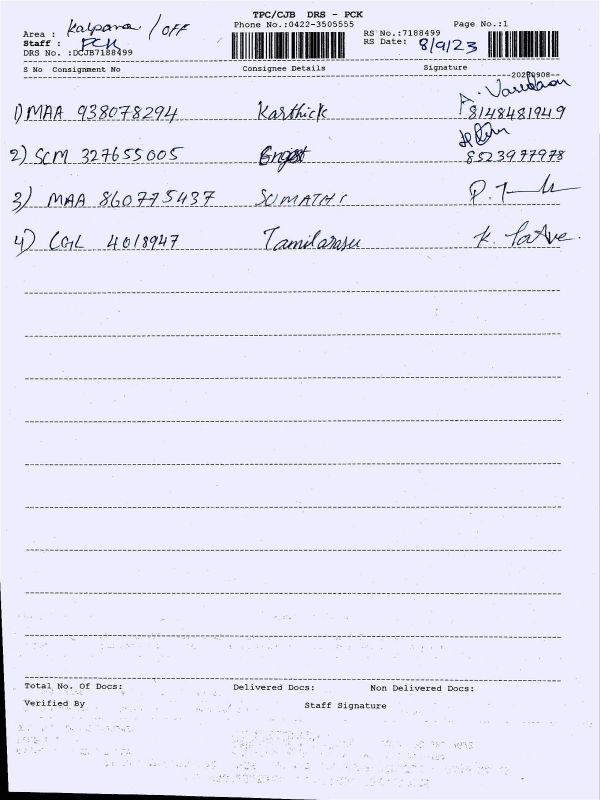 TPC/CJB DRS - PCK
Phone No.:0422-3505555 Page No.:1
Area : Kalpana / OFF
Staff : PCK
DRS No. :DCJB7188499
RS No.:7188499
RS Date: 8/9/23
S No Consignment No Consignee Details Signature
--20230908--
1) MAA 938078294 Karthick 8148481949
2) SCM 327655005 8523977978
3) MAA 860775437 SUMATHI
4) CGL 4018947 Tamilarasu
Total No. Of Docs: Delivered Docs: Non Delivered Docs:
Verified By Staff Signature